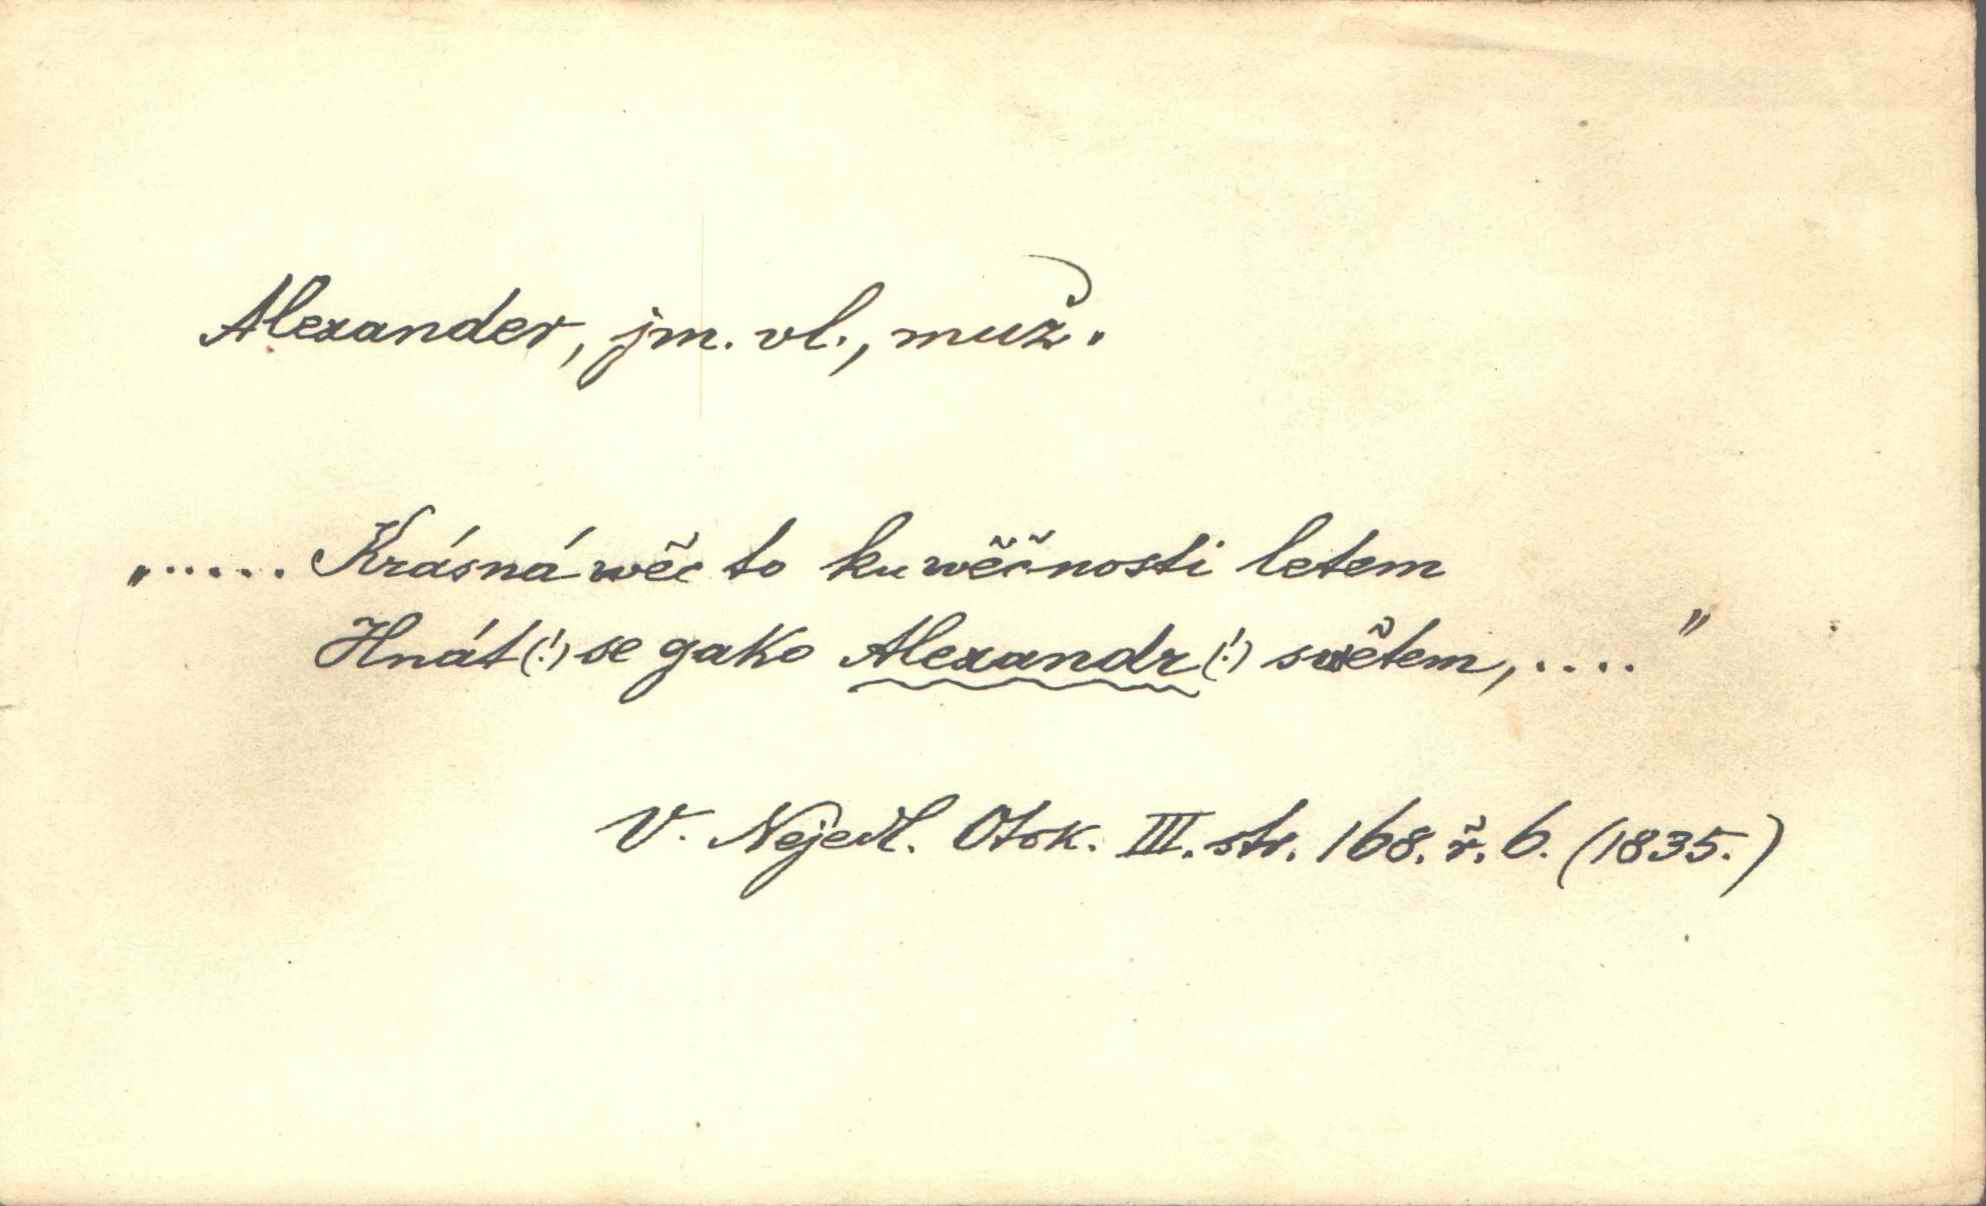 Alexander, jm. vl., muž.
„..... Krásná wěc to ku wěčnosti letem
Hnát(!) se gako Alexandr(!) swětem, ...."
V. Nejedl. Otok. III. str. 168. ř. 6. (1835.)